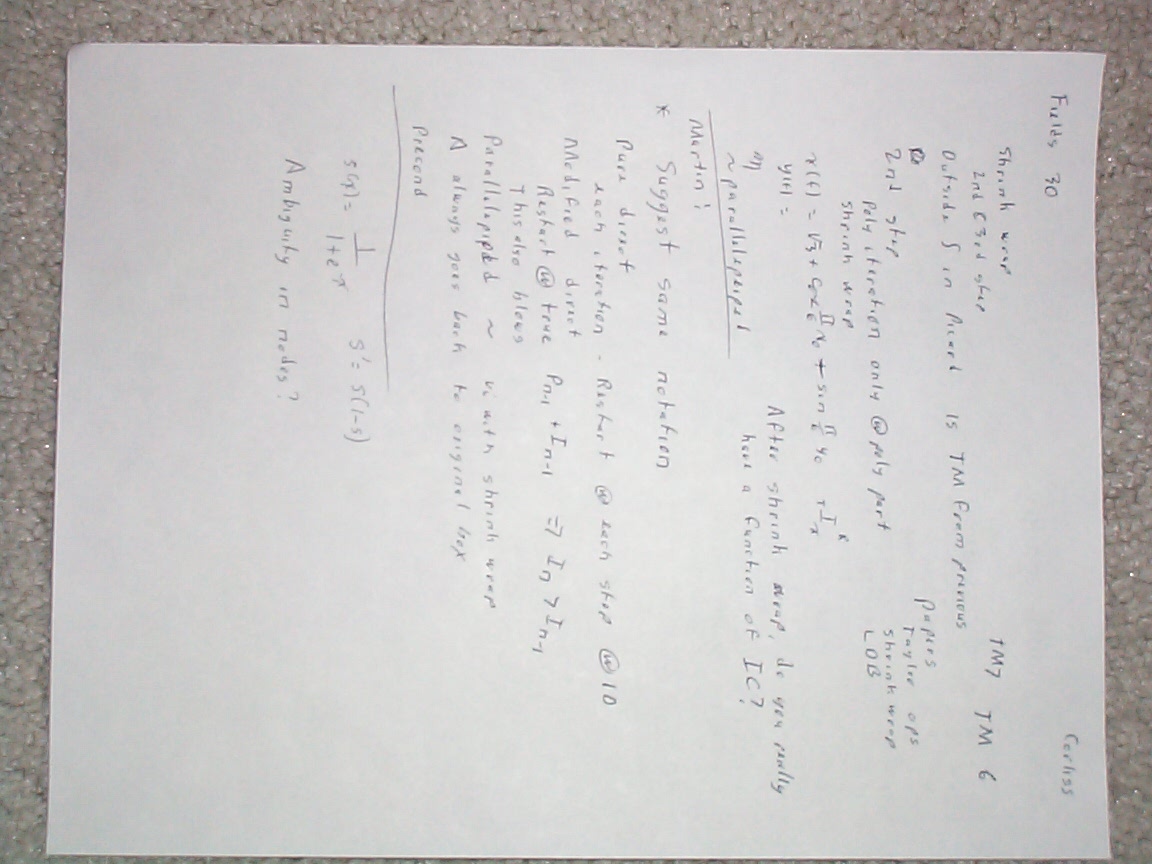 Fields 30
Corliss
Shrink wrap
TM7 TM 6
2nd & 3rd step
Outside ∫ in Picard is TM from previous
Papers
Taylor ops
Shrink wrap
LOB
2nd step
Poly iteration only @ poly part
Shrink wrap
x(t) = √3 + cos π/6 x₀ + sin π/6 y₀ + I_x^R
y(t) =
After shrink wrap, do you really
have a function of IC?
~ parallelepiped
Martin:
* Suggest same notation
Pure direct
each iteration - Restart @ each step @ 10
Modified direct
Restart @ true Pn-1 + In-1 => In > In-1
This also blows
Parallelepiped ~ with shrink wrap
A always goes back to original box
Precond
s(x) = 1/(1+e^x) s' = s(1-s)
Ambiguity in nodes?